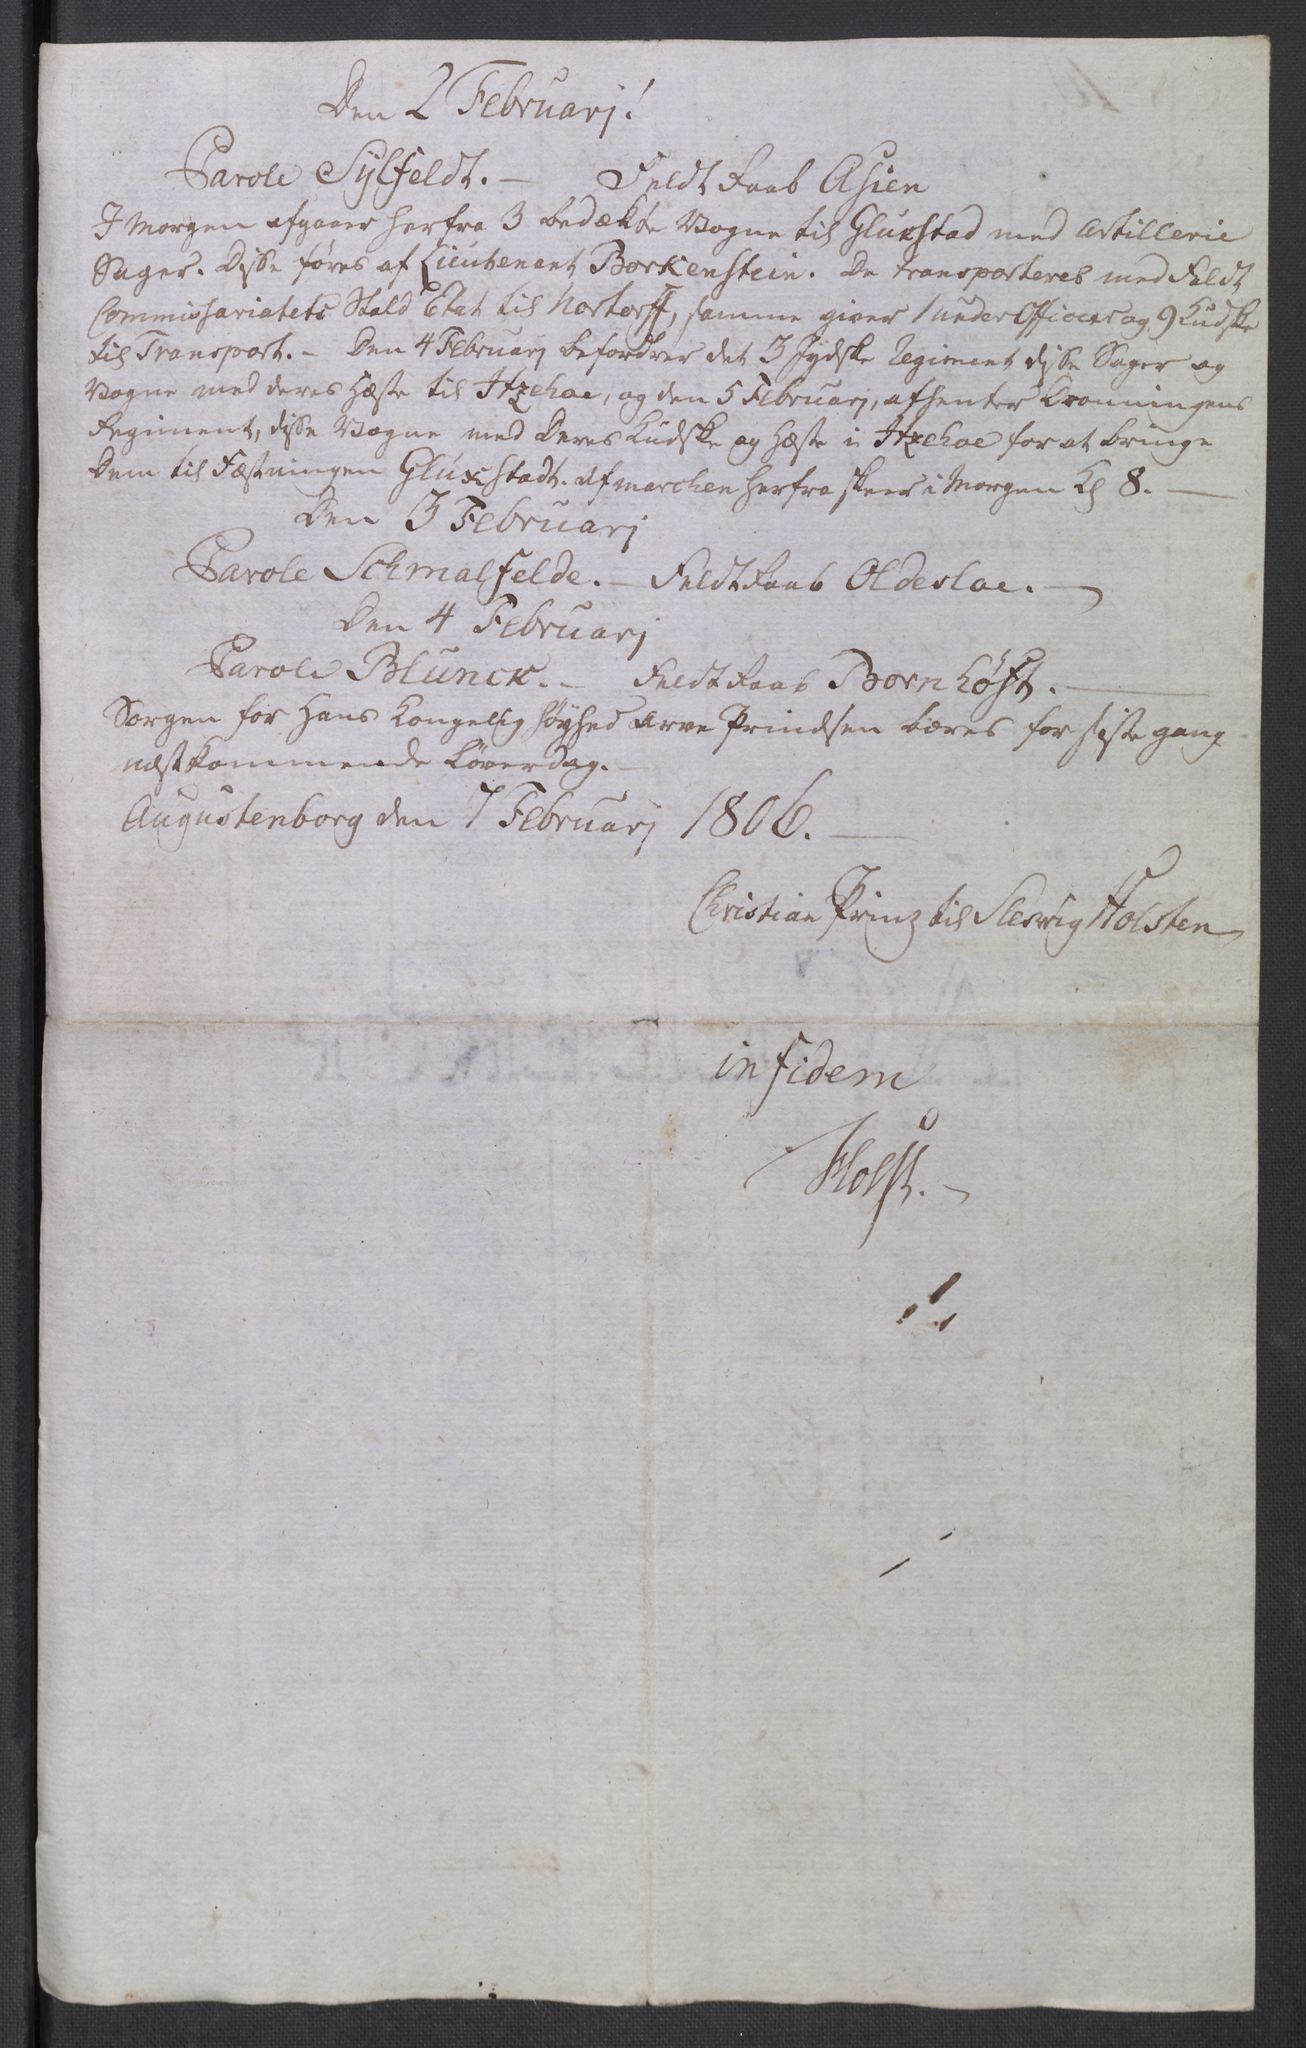 Den 2 Februarj!
Parole Sylfeldt. — Feldt Raab Asien
I Morgen afgaaer herfra 3 bedækte Vogne til Glükstad med Artillerie
Sager. Disse føres af Lieutenant Borkenstein. De transporteres med Feldt
Commissariatets Stald Etat til Nortorff, samme giver 1 underOfficier og 9 Kudske
til Transport. – Den 4 Februarj befordrer det 3 Jydske Regiment disse Sager og
Vogne med deres Hæste til Itzehoe, og den 5 Februarj, afhenter Dronningens
Regiment, disse Vogne med Deres Kudske og Hæste i Itzehoe for at bringe
Dem til Fæstningen Glükstadt. Afmarchen herfra skeer i Morgen Kl 8. —
Den 3 Februarj
Parole Schmalfelde. – Feldt Raab Oldesloe. —
Den 4 Februarj
Parole Blunck. – Feldt Raab Bornhöft. —
Sorgen for Hans Kongelig Höyhed Arve Prindsen bæres for siste gang
næstkommende Löverdag. –
Augustenborg den 7 Februarj 1806. —
Christian Prinz til Slesvig Holsten
in fidem
Holst. –